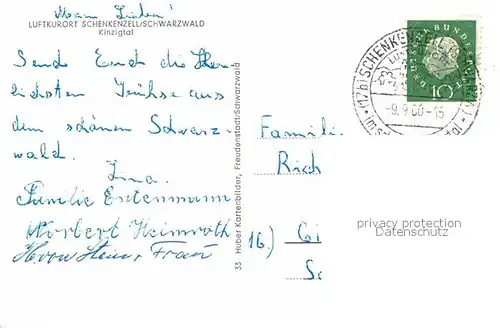 Meine Lieben!
LUFTKURORT SCHENKENZELL/SCHWARZWALD
Kinzigtal
Sende Euch die Her-
lichsten Grüsse aus
dem schönen Schwarz-
wald.
Familie Entenmann
Norbert Heimroth
Frau
33 Huber Kartenbilder, Freudenstadt/Schwarzwald
DEUTSCHE BUNDESPOST
10
(17b) SCHENKENZELL
-9.9.60-15
Familie
Rich
16.) G
privacy protection
Datenschutz